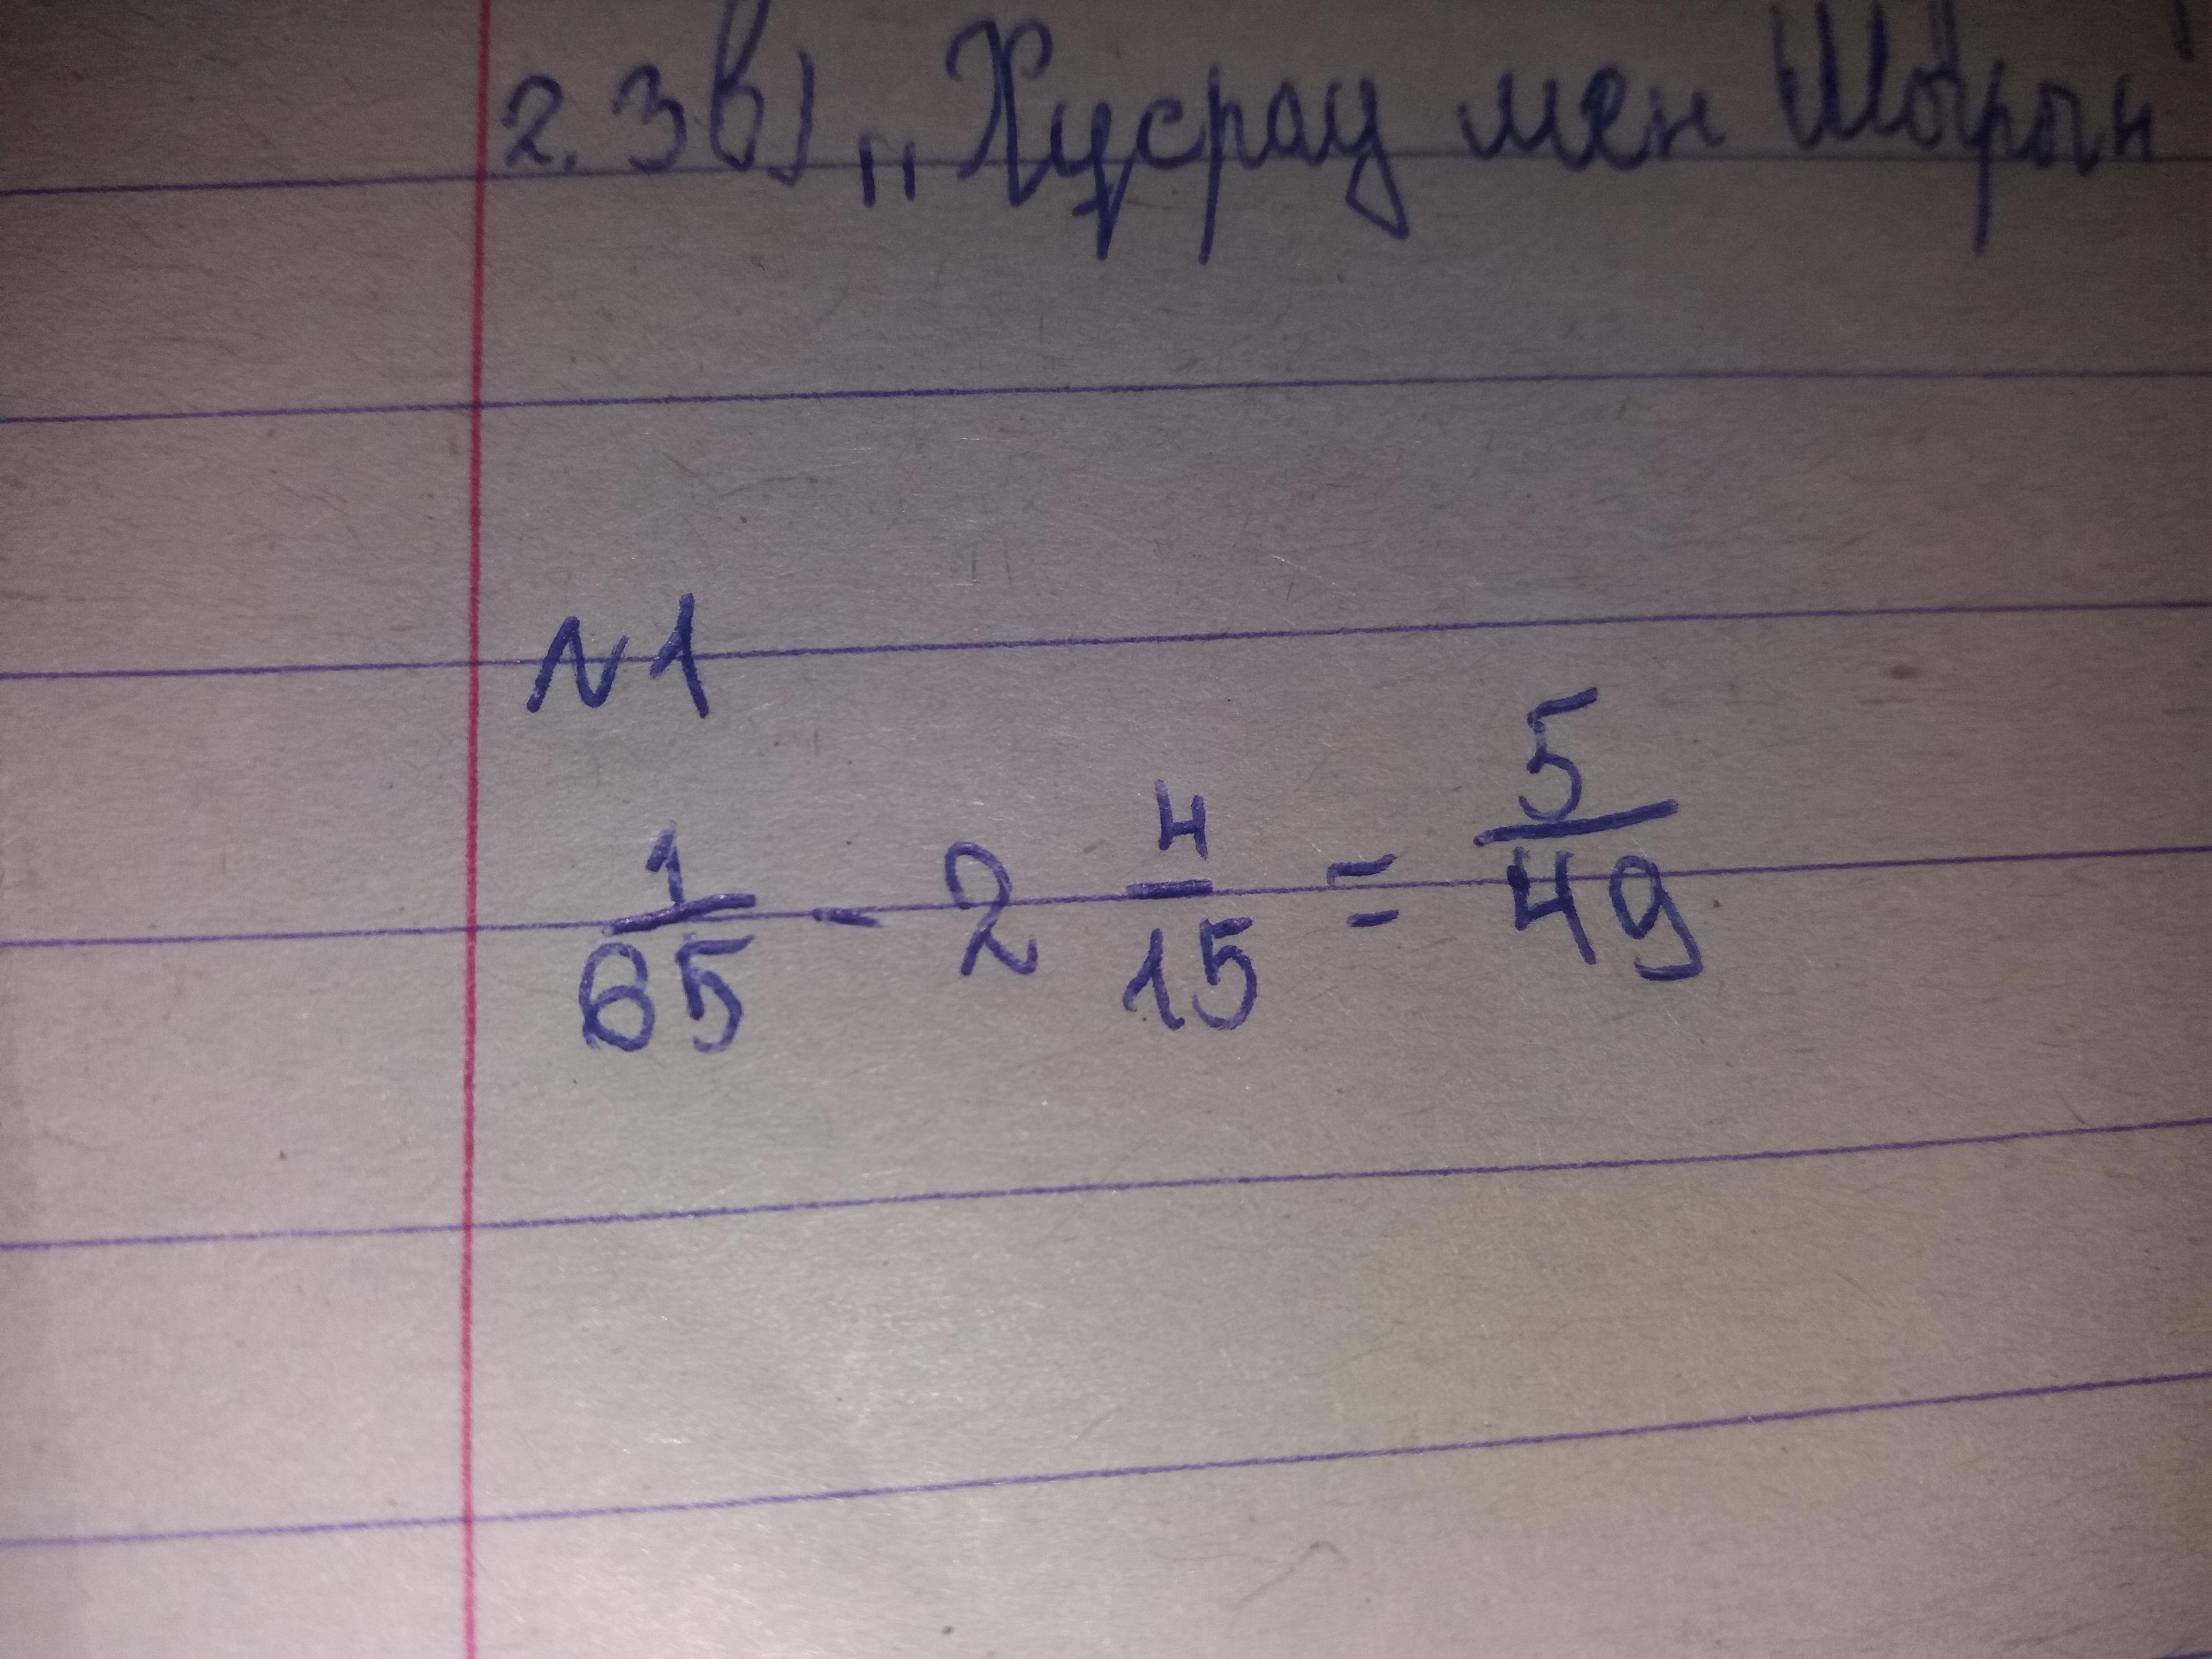 2. 3 в) „Хұсрау мен Шырын"
N1
1/65 - 2 4/15 = 5/49